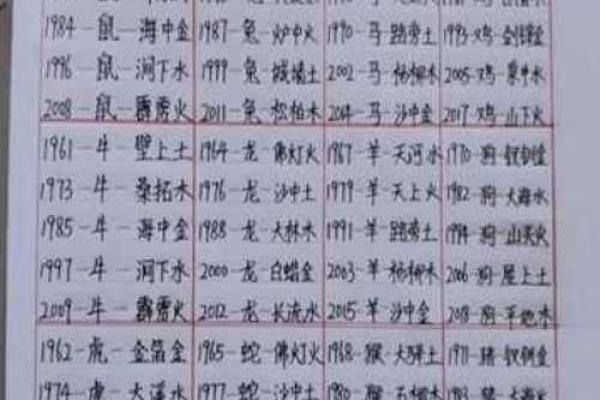 1984-鼠-海中金 1987-兔-炉中火 1990-马-路旁土 1993-鸡-剑锋金
1996-鼠-涧下水 1999-兔-城墙土 2002-马-杨柳木 2005-鸡-泉中水
2008-鼠-霹雳火 2011-兔-松柏木 2014-马-沙中金 2017-鸡-山下火
1961-牛-壁上土 1964-龙-佛灯火 1967-羊-天河水 1970-狗-钗钏金
1973-牛-桑拓木 1976-龙-沙中土 1979-羊-天上火 1982-狗-大海水
1985-牛-海中金 1988-龙-大林木 1991-羊-路旁土 1994-狗-山头火
1997-牛-涧下水 2000-龙-白蜡金 2003-羊-杨柳木 2006-狗-屋上土
2009-牛-霹雳火 2012-龙-长流水 2015-羊-沙中金 2018-狗-平地木
1962-虎-金箔金 1965-蛇-佛灯火 1968-猴-大驿土 1971-猪-钗钏金
1974-虎-大溪水 1977-蛇-沙中土 1980-猴-石榴木 1983-猪-大海水